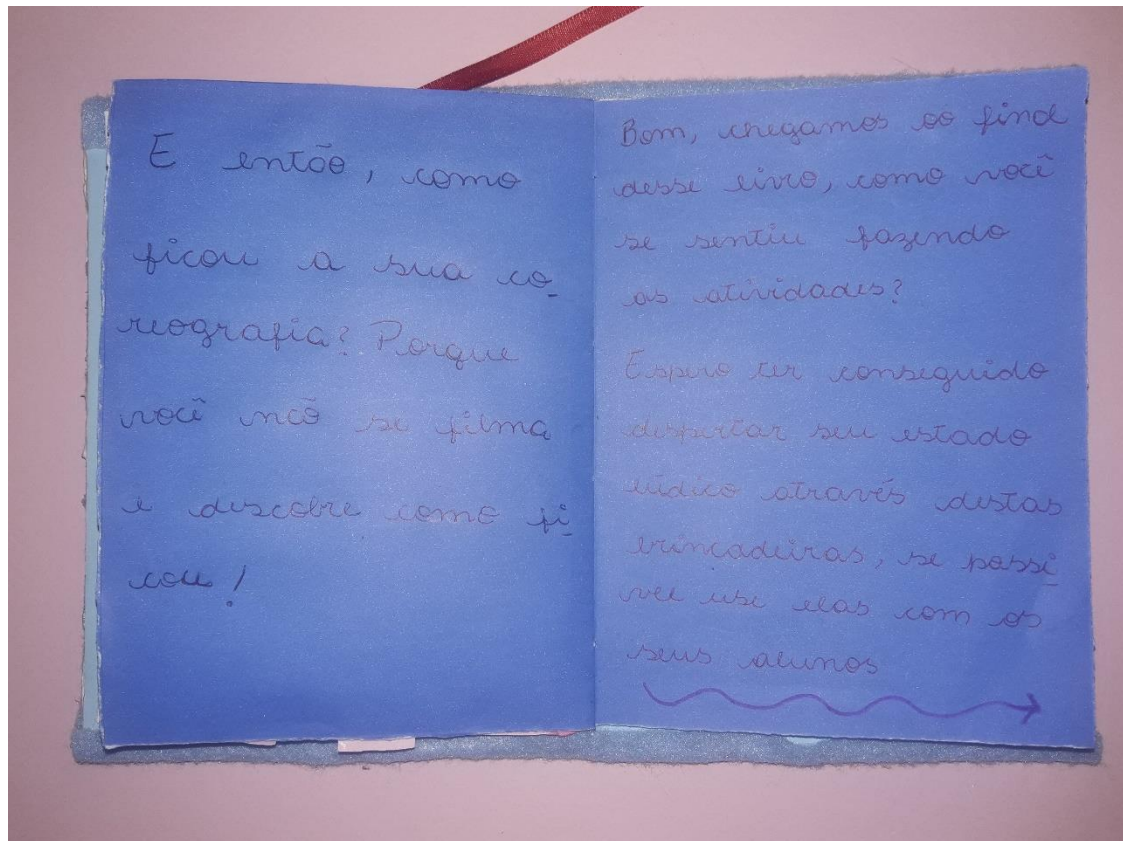 E então, como
ficou a sua co-
reografia? Porque
você não se filma
e descobre como fi-
cou!
Bom, chegamos ao final
desse livro, como você
se sentiu fazendo
as atividades?
Espero ter conseguido
despertar seu estado
lúdico através destas
brincadeiras, se possí-
vel use elas com os
seus alunos